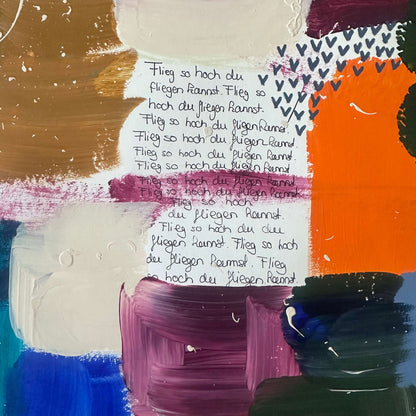 Flieg so hoch du
fliegen kannst. Flieg so
hoch du fliegen kannst.
Flieg so hoch du fliegen kannst.
Flieg so hoch du fliegen kannst.
Flieg so hoch du fliegen kannst.
Flieg so hoch du fliegen kannst
Flieg so hoch du fliegen kannst
Flieg so hoch du fliegen kannst.
Flieg so hoch
du fliegen kannst.
Flieg so hoch du
fliegen kannst. Flieg so hoch
du fliegen kannst. Flieg
so hoch du fliegen kannst.